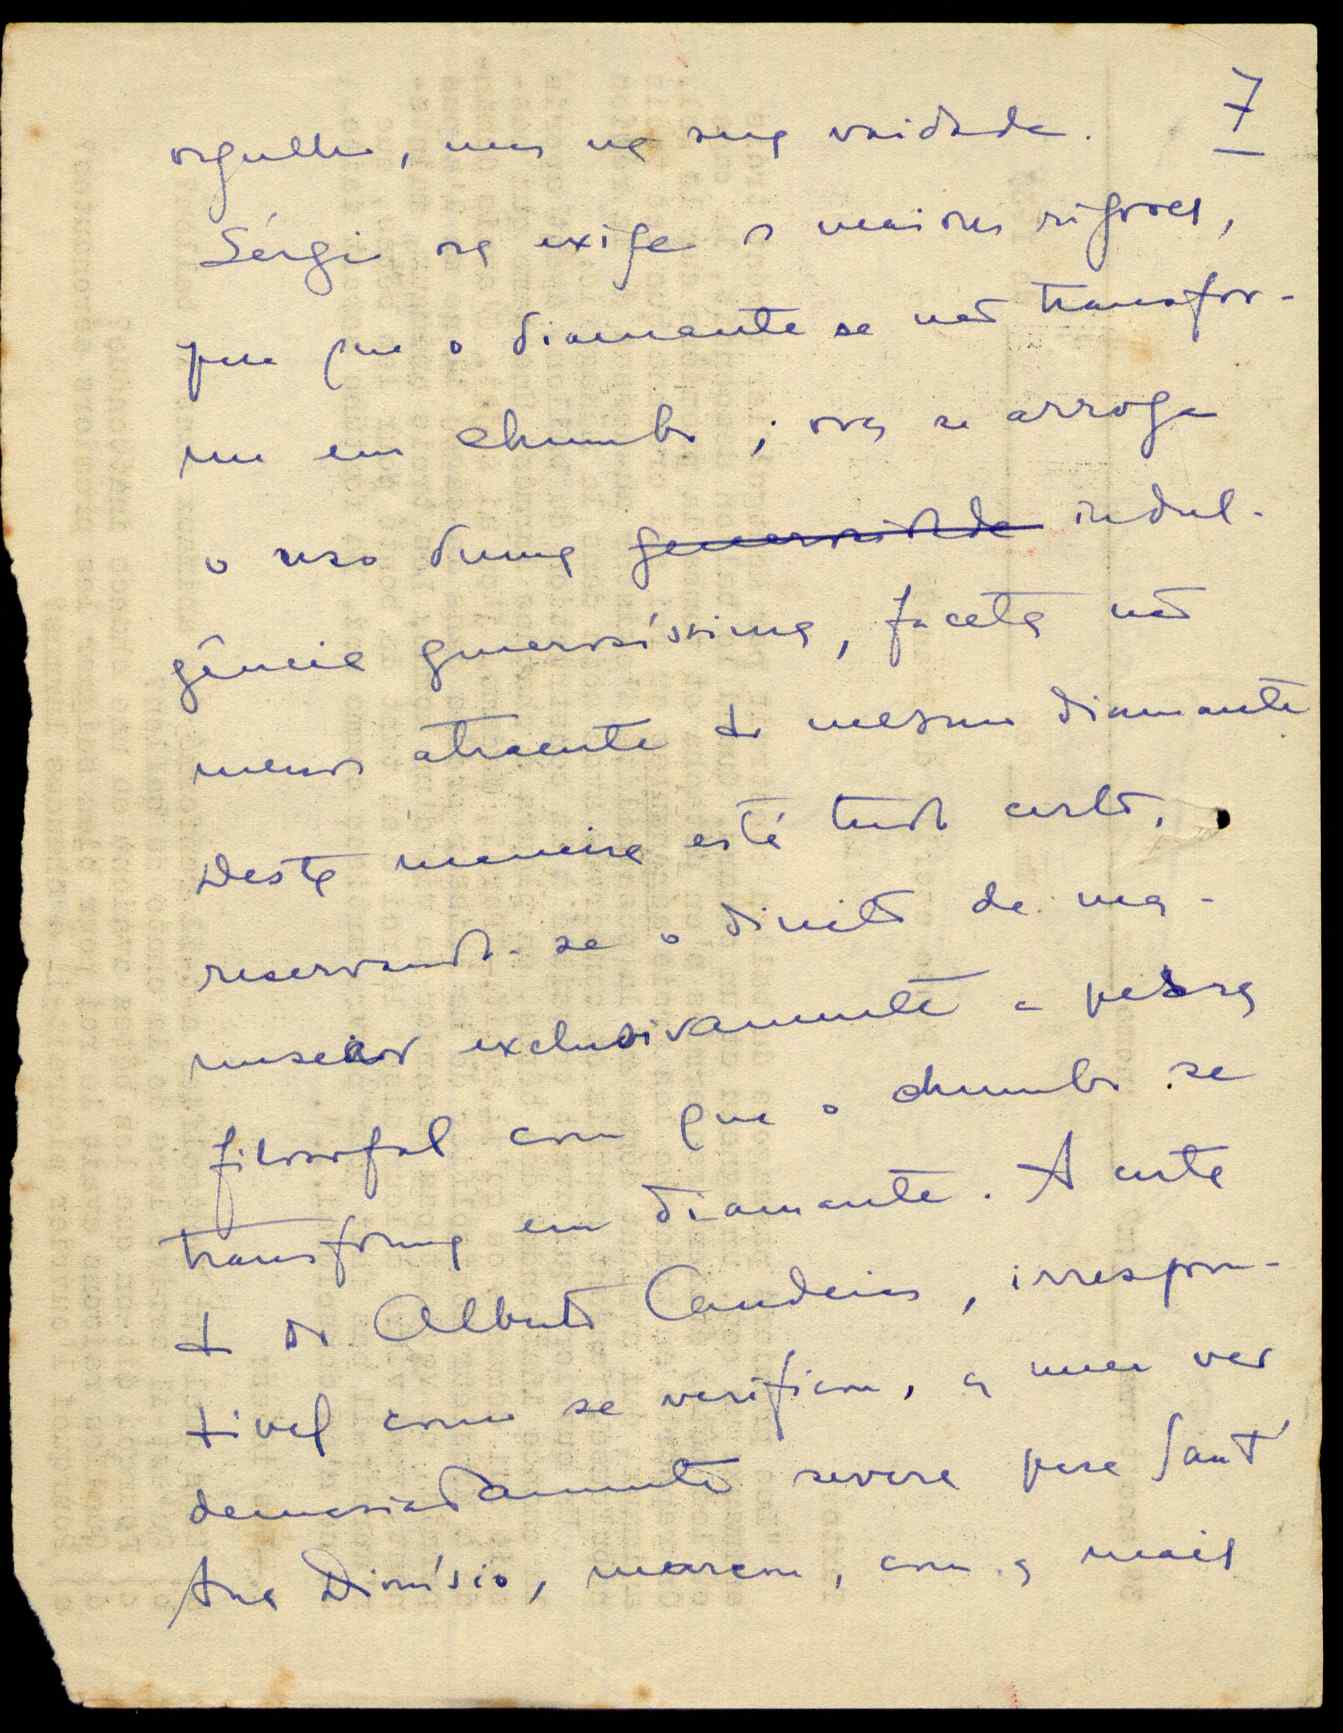 7
orgulho, mas na sua vaidade.
Sérgio ora exige os maiores rigores,
para que o diamante se não transfor-
me em chumbo; ora se arroga
o uso duma generosidade indul-
gência generosíssima, faceta não
menos atraente do mesmo diamante
Desta maneira está tudo certo,
reservando-se o direito de ma-
nusear exclusivamente a pedra
filosofal com que o chumbo se
transforma em diamante. A carta
do Dr Alberto Candeias, irrespon-
dível como se verificou, a meu ver
demasiadamente severa para Sant'
Ana Dionísio, marcou, com a mais